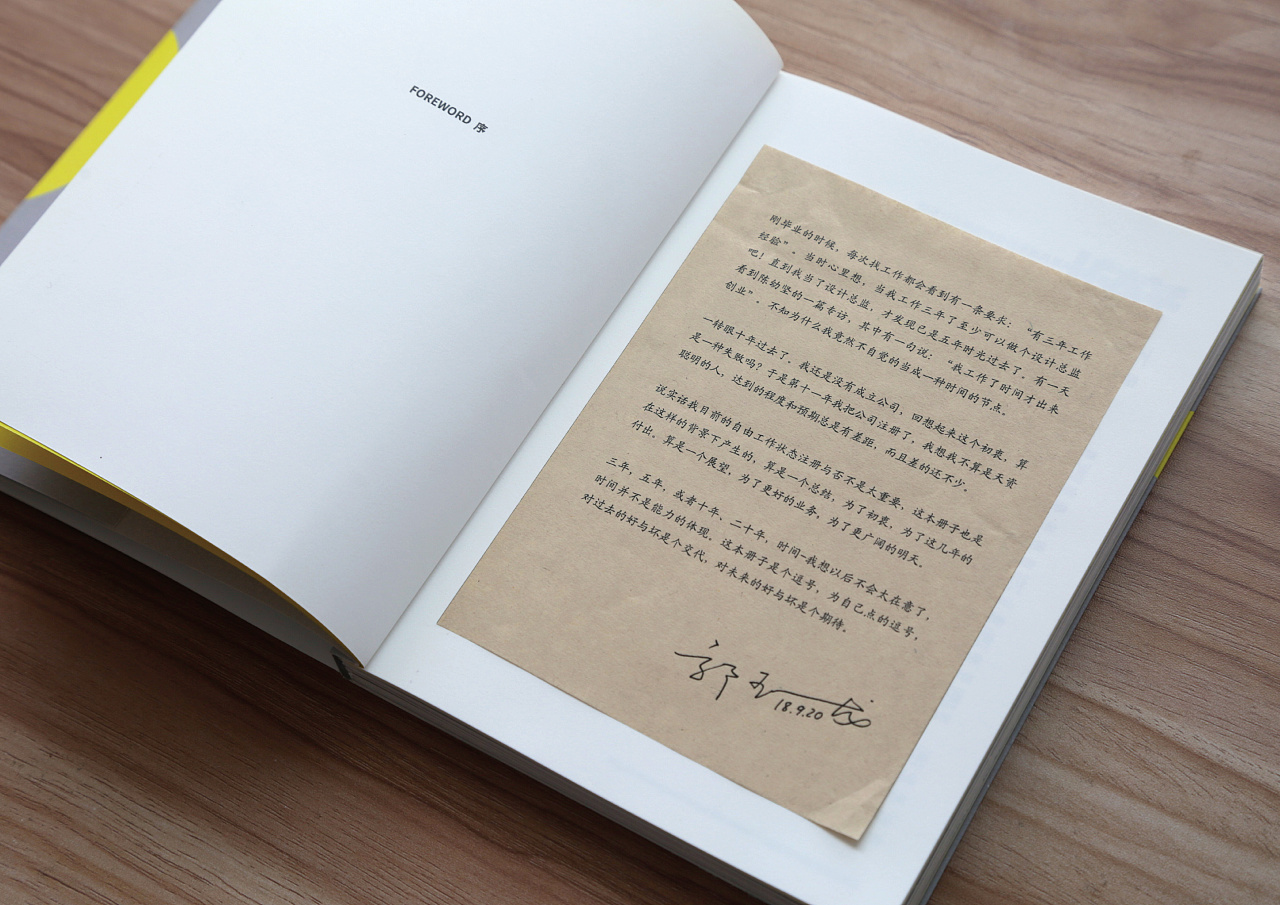 FOREWORD 序
刚毕业的时候，每次找工作都会看到有一条要求：“有三年工作
经验”。当时心里想，当我工作三年了至少可以做个设计总监
吧！直到我当了设计总监，才发现已是五年时光过去了，有一天
看到陈幼坚的一篇专访，其中有一句说：“我工作了时间才出来
创业”。不知为什么我竟然不自觉的当成一种时间的节点。
一转眼十年过去了，我还是没有成立公司，回想起来这个初衷，算
是一种失败吗？于是第十一年我把公司注册了，我想我不算是天资
聪明的人，达到的程度和预期总是有差距，而且差的还不少。
说实话我目前的自由工作状态注册与否不是太重要，这本册子也是
在这样的背景下产生的，算是一个总结，为了初衷，为了这几年的
付出。算是一个展望，为了更好的业务，为了更广阔的明天。
三年，五年，或者十年、二十年，时间-我想以后不会太在意了，
时间并不是能力的体现，这本册子是个逗号，为自己点的逗号，
对过去的好与坏是个交代，对未来的好与坏是个期待。
18.9.20